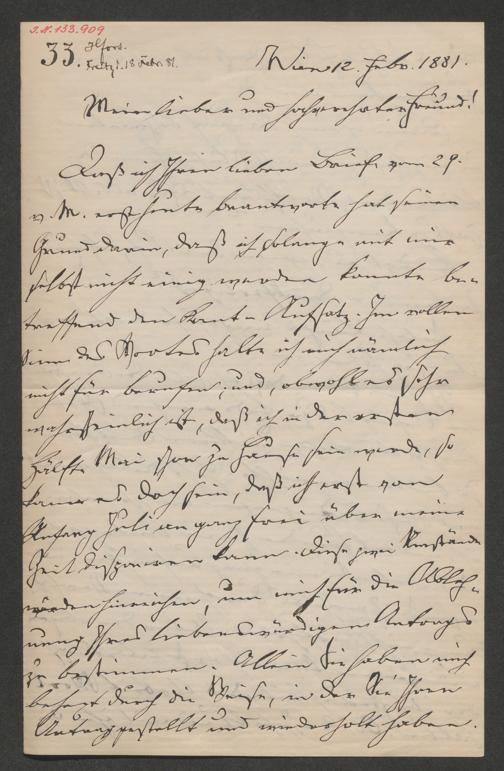 J.N. 133.909
33.
Wien 12. Febr. 1881.
Mein lieber und hochverehrter Freund!
Daß ich Ihren lieben Brief vom 29.
v. M. erst heute beantworte hat seinen
Grund darin, daß ich solange mit mir
selbst nicht einig werden konnte be-
treffend den Kant-Aufsatz. Im vollen
Sinn des Wortes halte ich mich nämlich
nicht für berufen, und, obwohl es sehr
wahrscheinlich ist, daß ich in der ersten
Hälfte Mai schon zu Hause sein werde, so
kann es doch sein, daß ich erst von
Anfang Juli an ganz frei über meine
Zeit disponiren kann. Diese zwei Umstände
würden hinreichen, um mich für die Ableh-
nung Ihres liebenswürdigen Antrags
zu bestimmen. Allein Sie haben mich
besiegt durch die Weise, in der Sie Ihren
Antrag gestellt und wiederholt haben.